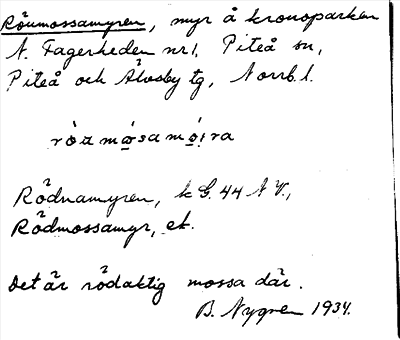 Röumossamyren, myr å kronoparken
N. Fagerheden nr 1, Piteå sn,
Piteå och Älvsby tg, Norrb. l.
Rödnamyren, k G. 44 A V.,
Rödmossamyr, et.
Det är rödaktig mossa där.
B. Nygren 1934.